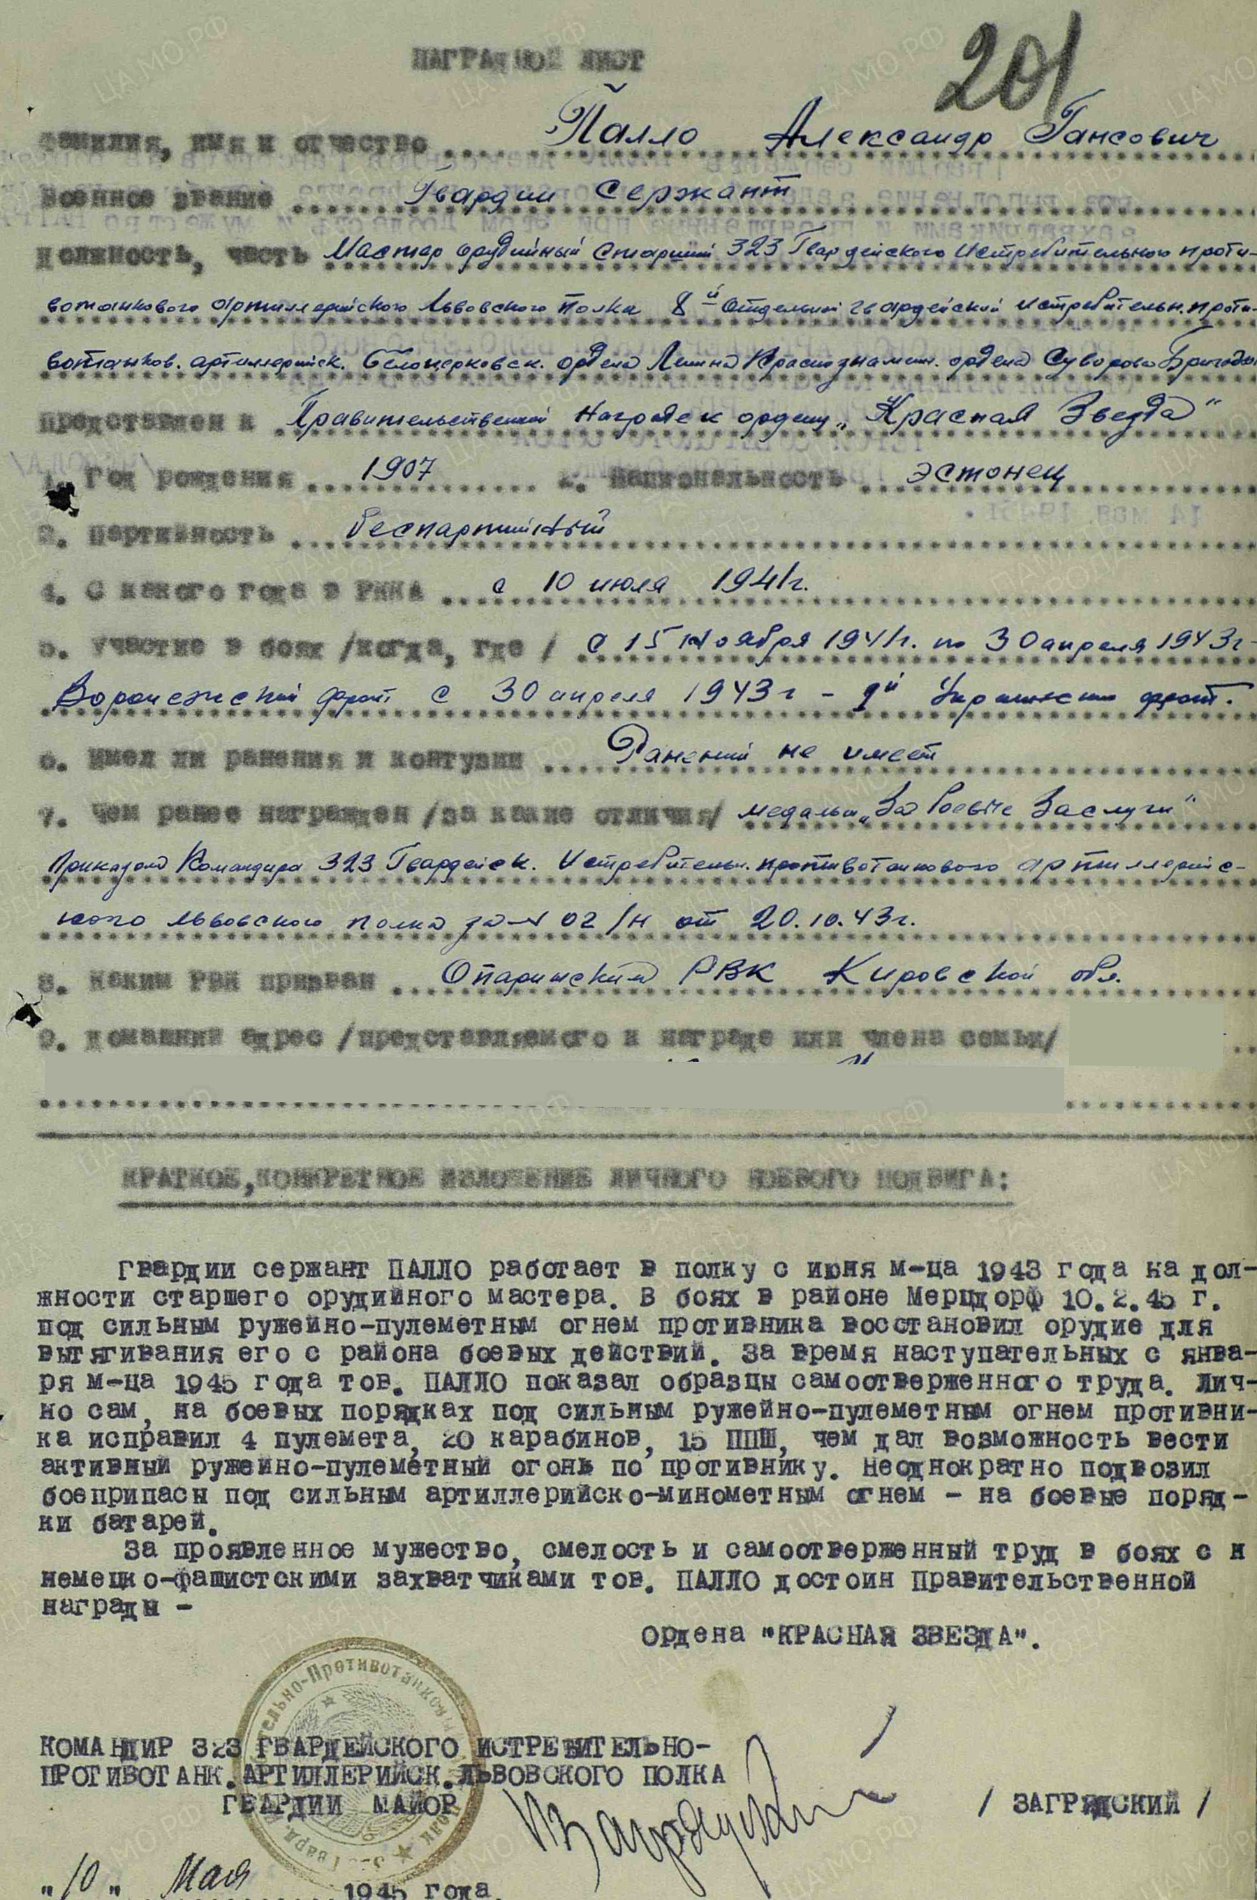 201
НАГРАДНОЙ ЛИСТ
Фамилия, имя и отчество .... Палло Александр Гансович
Военное звание ..... Гвардии сержант
Должность, часть Мастер орудийный старший 323 Гвардейского Истребительного проти-
вотанкового артиллерийского Львовского полка 8й отдельной гвардейской истребительн. проти-
вотанков. артиллерийск. Белоцерковск. ордена Ленина Краснознамен. ордена Суворова Бригады
Представлен к Правительственной награде к ордену „Красная Звезда"
1. Год рождения .... 1907 2. Национальность ... эстонец
3. Партийность ... беспартийный
4. С какого года в РККА .... с 10 июля 1941г.
5. Участие в боях /когда, где / с 15 ноября 1941г. по 30 апреля 1943г
Воронежский фронт с 30 апреля 1943г - 1й Украинский фронт.
6. Имел ли ранения и контузии ... Ранений не имеет
7. Чем ранее награжден /за какие отличия/ медалью „За боевые Заслуги"
приказом Командира 323 Гвардейск. Истребительн. противотанкового артиллерийс-
кого Львовского полка за № 02/н от 20.10.43г.
8. Каким РВК призван ... Опаринским РВК Кировской обл.
9. Домашний адрес /представляемого к награде или члена семьи/
КРАТКОЕ, КОНКРЕТНОЕ ИЗЛОЖЕНИЕ ЛИЧНОГО БОЕВОГО ПОДВИГА:
Гвардии сержант ПАЛЛО работает в полку с июня м-ца 1943 года на дол-
жности старшего орудийного мастера. В боях в районе Мерцдорф 10.2.45 г.
под сильным ружейно-пулеметным огнем противника восстановил орудие для
вытягивания его с района боевых действий. За время наступательных с янва-
ря м-ца 1945 года тов. ПАЛЛО показал образцы самоотверженного труда. Лич-
но сам, на боевых порядках под сильным ружейно-пулеметным огнем противни-
ка исправил 4 пулемета, 20 карабинов, 15 ППШ, чем дал возможность вести
активный ружейно-пулеметный огонь по противнику. Неоднократно подвозил
боеприпасы под сильным артиллерийско-минометным огнем - на боевые поряд-
ки батарей.
За проявленное мужество, смелость и самоотверженный труд в боях с н
немецко-фашистскими захватчиками тов. ПАЛЛО достоин Правительственной
награды -
Ордена "КРАСНАЯ ЗВЕЗДА".
КОМАНДИР 323 ГВАРДЕЙСКОГО ИСТРЕБИТЕЛЬНО-
ПРОТИВОТАНК.АРТИЛЛЕРИЙСК.ЛЬВОВСКОГО ПОЛКА
ГВАРДИИ МАЙОР / ЗАГРЯДСКИЙ /
"10" Мая 1945 года.